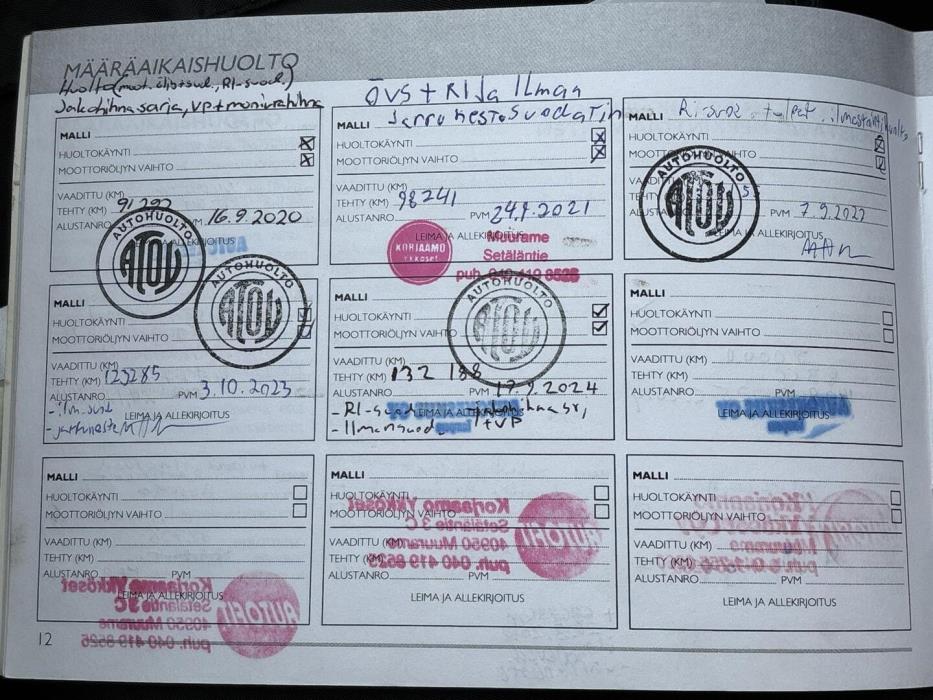 MÄÄRÄAIKAISHUOLTO
Huolto (moot.öljy+suod., RI-suod.)
Jakohihnasarja, VP+monirahihna
MALLI
HUOLTOKÄYNTI
MOOTTORIÖLJYN VAIHTO
VAADITTU (KM)
TEHTY (KM) 91292
ALUSTANRO PVM 16.9.2020
LEIMA JA ALLEKIRJOITUS
AUTOHUOLTO
ATOY
ÖVS + RI Ja Ilman
Jarrunestesuodatin
MALLI
HUOLTOKÄYNTI
MOOTTORIÖLJYN VAIHTO
VAADITTU (KM)
TEHTY (KM) 98241
ALUSTANRO PVM 24.9.2021
LEIMA JA ALLEKIRJOITUS
KORJAAMO
YKKÖSET
Muurame
Setäläntie
puh. 040 419 8526
MALLI Ri-suod
HUOLTOKÄYNTI
VAADITTU (KM)
TEHTY
PVM 7.9.2022
LEIMA JA ALLEKIRJOITUS
AUTOHUOLTO
ATOY
MALLI
HUOLTOKÄYNTI
MOOTTORIÖLJYN VAIHTO
VAADITTU (KM)
TEHTY (KM) 123285
ALUSTANRO PVM 3.10.2023
- ilm.suod
- jarruneste
LEIMA JA ALLEKIRJOITUS
AUTOHUOLTO
ATOY
MALLI
HUOLTOKÄYNTI
MOOTTORIÖLJYN VAIHTO
VAADITTU (KM)
TEHTY (KM) 132 188
ALUSTANRO PVM 17.9.2024
- RI-suod
- Ilmansuod
+VP
LEIMA JA ALLEKIRJOITUS
AUTOHUOLTO
ATOY
MALLI
HUOLTOKÄYNTI
MOOTTORIÖLJYN VAIHTO
VAADITTU (KM)
TEHTY (KM)
ALUSTANRO PVM
LEIMA JA ALLEKIRJOITUS
MALLI
HUOLTOKÄYNTI
MOOTTORIÖLJYN VAIHTO
VAADITTU (KM)
TEHTY (KM)
ALUSTANRO PVM
LEIMA JA ALLEKIRJOITUS
Korjaamo Ykköset
Setäläntie 3 C
40950 Muurame
puh. 040 419 8526
AUTOFIT
MALLI
HUOLTOKÄYNTI
MOOTTORIÖLJYN VAIHTO
VAADITTU (KM)
TEHTY (KM)
ALUSTANRO PVM
LEIMA JA ALLEKIRJOITUS
Korjaamo Ykköset
Setäläntie 3 C
40950 Muurame
puh. 040 419 8526
AUTOFIT
MALLI
HUOLTOKÄYNTI
MOOTTORIÖLJYN VAIHTO
VAADITTU (KM)
TEHTY (KM)
ALUSTANRO PVM
LEIMA JA ALLEKIRJOITUS
12